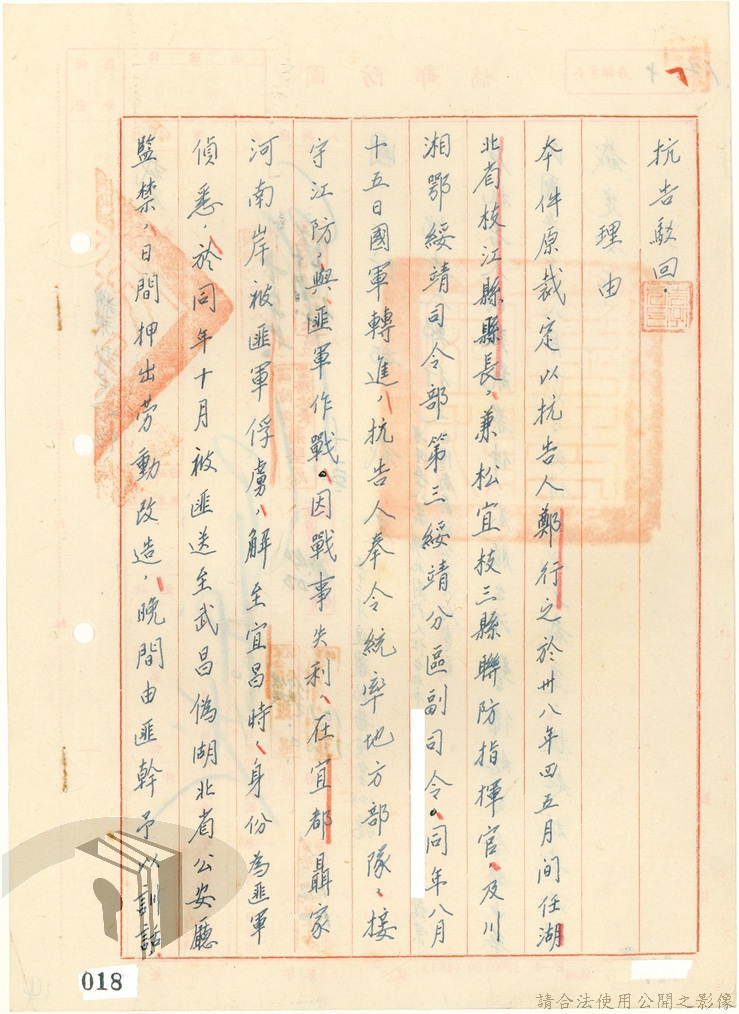 抗告駁回.
理由
本件原裁定以抗告人鄭行之於卅八年四五月間任湖
北省枝江縣縣長,兼松宜枝三縣聯防指揮官,及川
湘鄂綏靖司令部第三綏靖分區副司令。同年八月
十五日國軍轉進,抗告人奉令統率地方部隊、接
守江防,與匪軍作戰。因戰事失利、在宜都聶家
河南岸被匪軍俘虜,解至宜昌時、身份為匪軍
偵悉,於同年十月被匪送至武昌偽湖北省公安廳
監禁,日間押出勞動改造,晚間由匪幹予以訓話.
018
請合法使用公開之影像